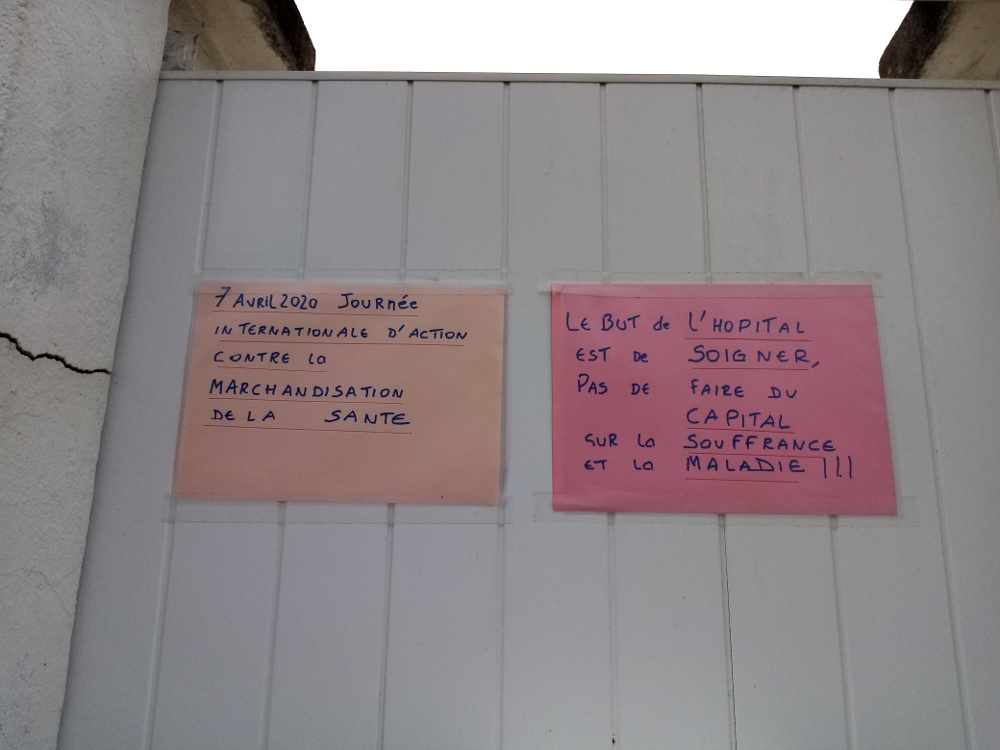 7 AVRIL 2020 JOURNée
INTERNATIONALE D'ACTION
CONTRE la
MARCHANDISATION
DE LA SANTE
LE BUT de L'HOPITAL
EST DE SOIGNER,
PAS DE FAIRE DU
CAPITAL
SUR la SOUFFRANCE
ET la MALADIE !!!